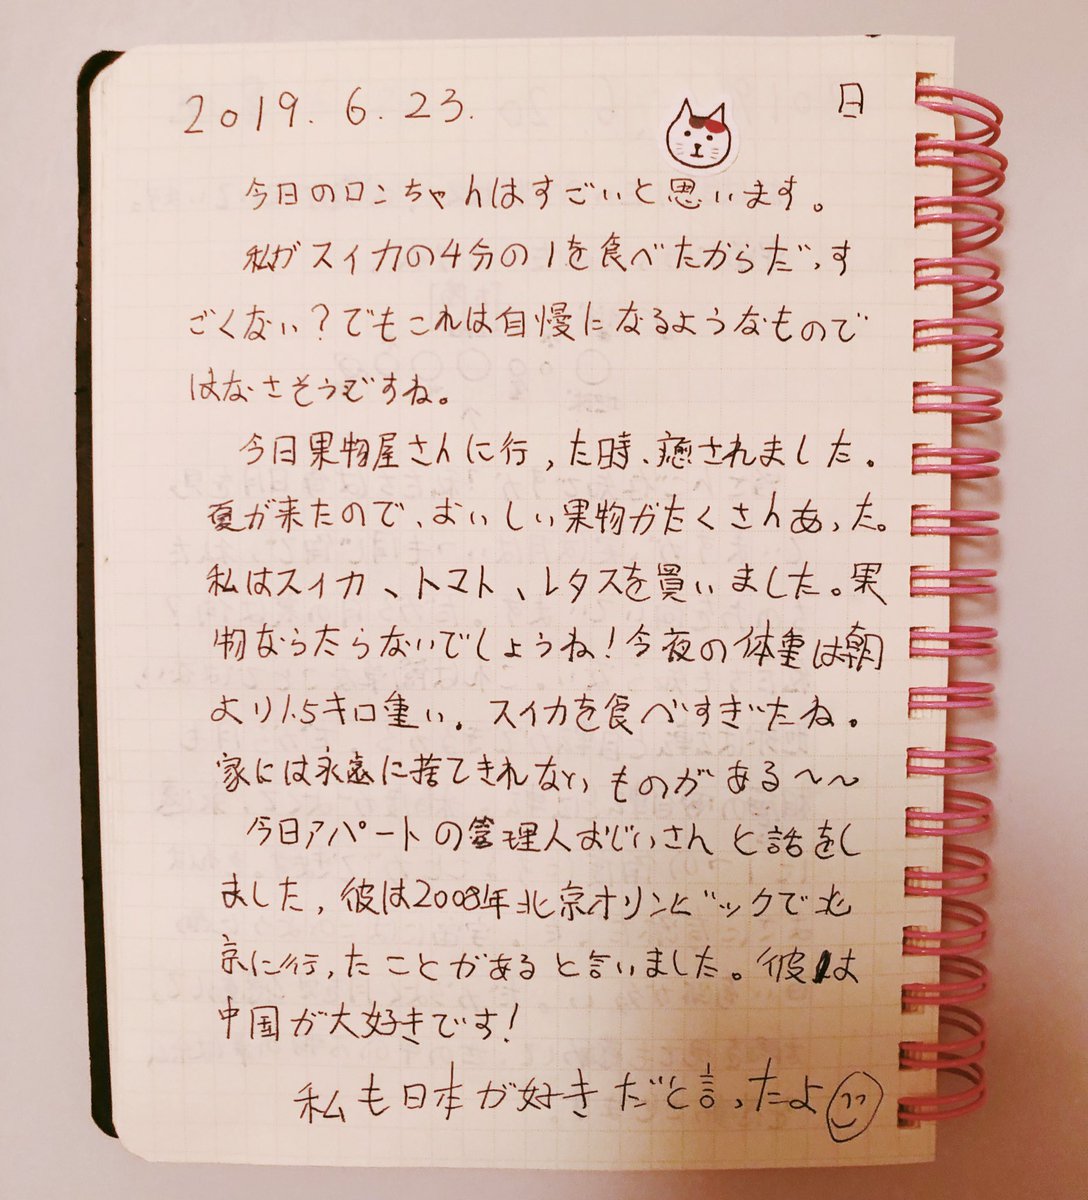 2019. 6. 23. 日
今日のロンちゃんはすごいと思います。
私がスイカの4分の1を食べたからだっす
ごくない?でもこれは自慢になるようなもので
はなさそうですね。
今日果物屋さんに行った時、癒されました。
夏が来たので、おいしい果物がたくさんあった。
私はスイカ、トマト、レタスを買いました。果
物ならたらないでしょうね!今夜の体重は朝
より1.5キロ重い。スイカを食べすぎたね。
家には永遠に捨てきれないものがある〜〜
今日アパートの管理人おじいさんと話をし
ました,彼は2008年北京オリンピックで北
京に行ったことがあると言いました。彼は
中国が大好きです!
私も日本が好きだと言ったよ